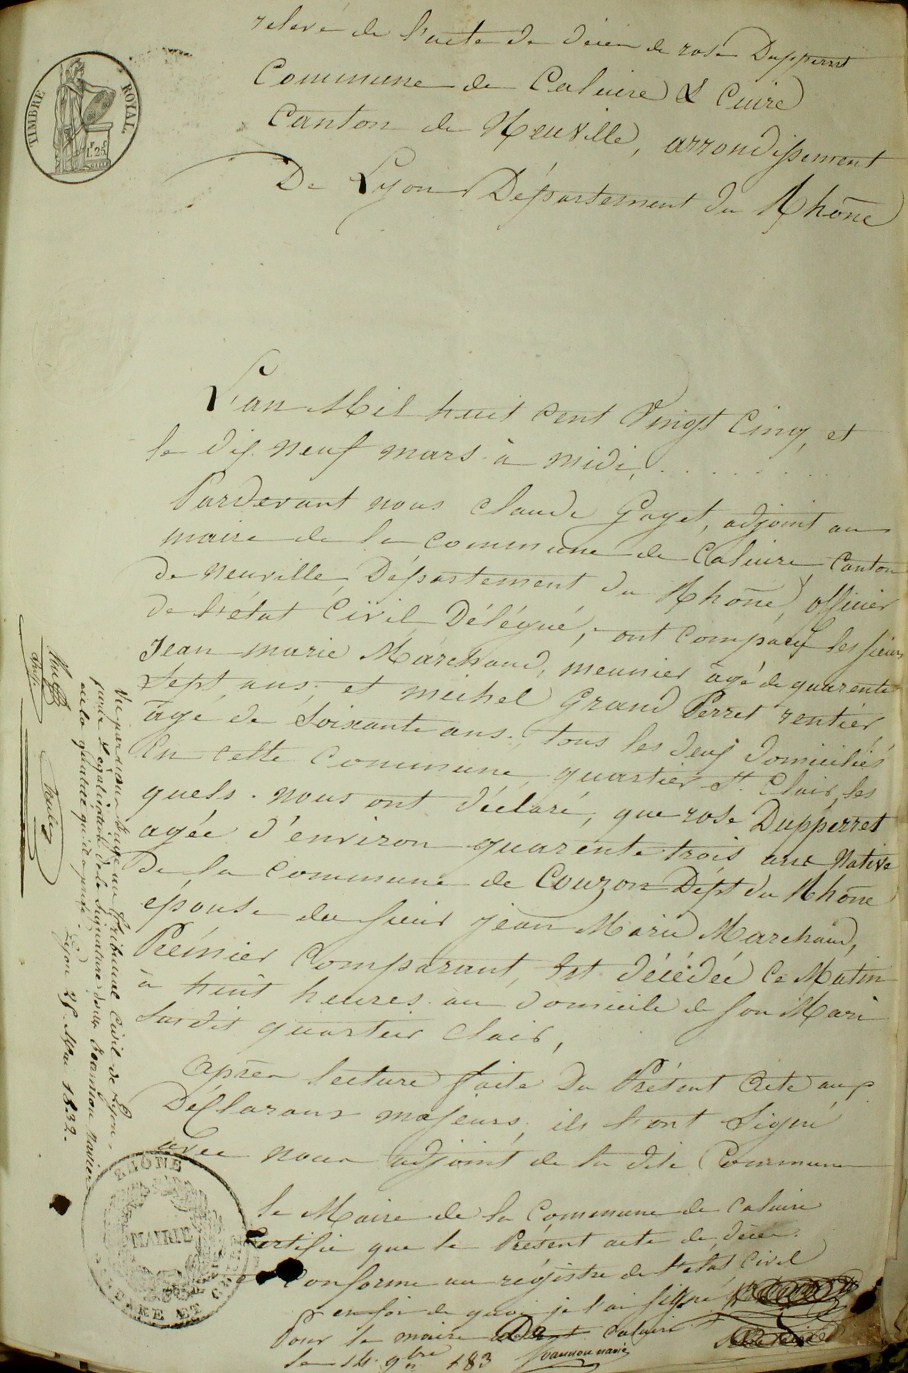 TIMBRE ROYAL
1.25
relevé de l'acte de décès de rose Dupperret
Commune de Caluire & Cuire
Canton de Neuville, arrondissement
De Lyon Département du Rhône
L'an Mil huit cent Vingt Cinq, et
le dix neuf mars à midi, . . . . . . .
Pardevant nous Claude Goyet, adjoint au
maire de la commune de Caluire, Canton
de Neuville, Département du Rhône, officier
de l'état Civil Délégué, ont comparu les sieurs
Jean marie Marchand, meunier âgé de quarente
sept ans, et michel Grand Perret rentier
âgé de soixante ans, tous les deux domiciliés
En cette Commune, quartier St. Clair, les
quels nous ont déclaré, que rose Dupperret
agée d'environ quarente trois ans Native
De la commune de Couzon Dépt du Rhône
épouse du sieur jean Marie Marchand,
Prémier Comparant, Est décédée Ce Matin
à huit heures au domicile de son Mari
susdit quartier Clair,
après lecture faite Du Présent Acte aux
Déclarans majeurs, ils l'ont Signé
avec nous adjoint de la dite Commune
le Maire de la Commune de Caluire
Certifie que le Présent acte de décès
Conforme au régistre de l'état Civil
en foi de quoi je l'ai signé
Pour le maire de Caluire
le 14 9bre 183
Vu par nous Juge au Tribunal Civil de Lyon,
pour Légalisation de la Signature de M. Jeannon Navier
en la qualité qu'il a prise. Lyon 25 Mai 1832.
RHÔNE
MAIRIE